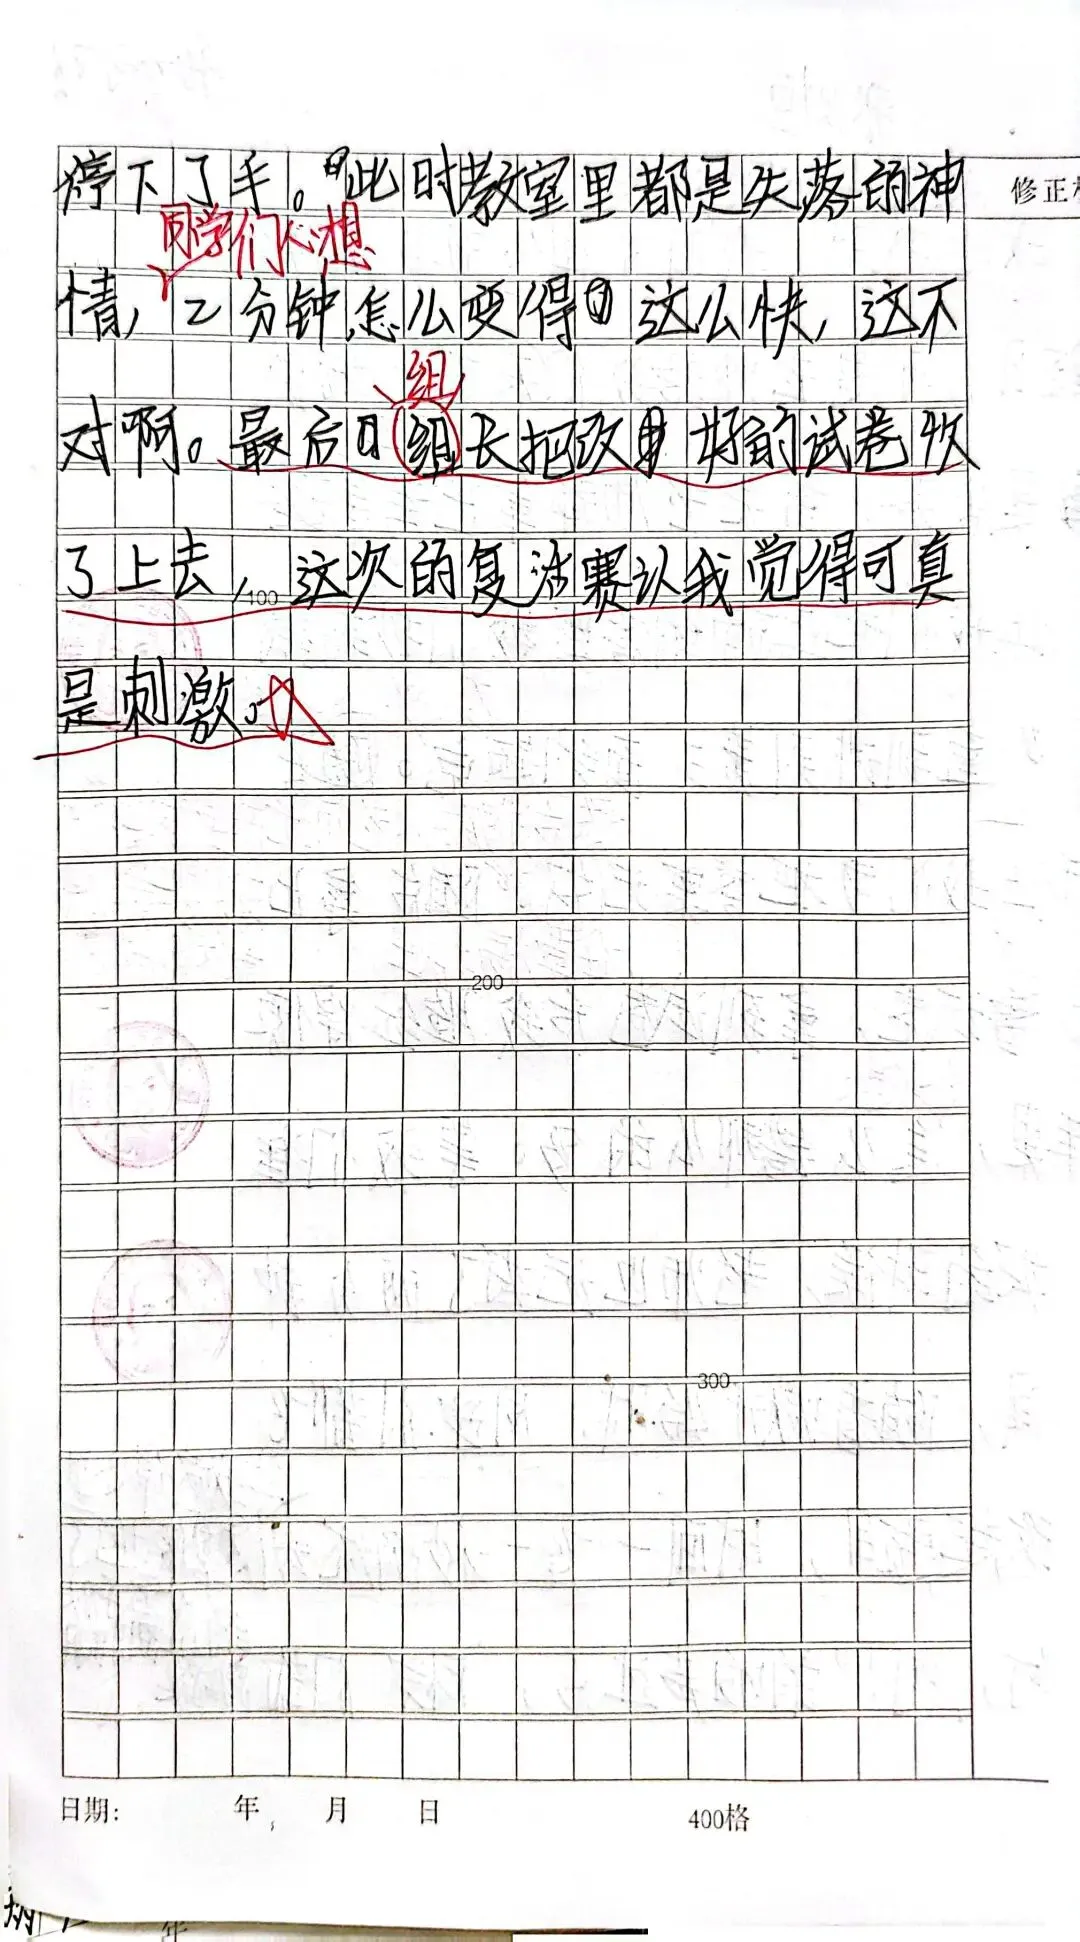 停下了手。此时教室里都是失落的神
修正
同学们心想
情，2分钟怎么变得这么快，这不
组
对啊。最后组长把改好的试卷收
了上去，这次的复活赛认我觉得可真
100
是刺激。
200
300
日期： 年 月 日 400格